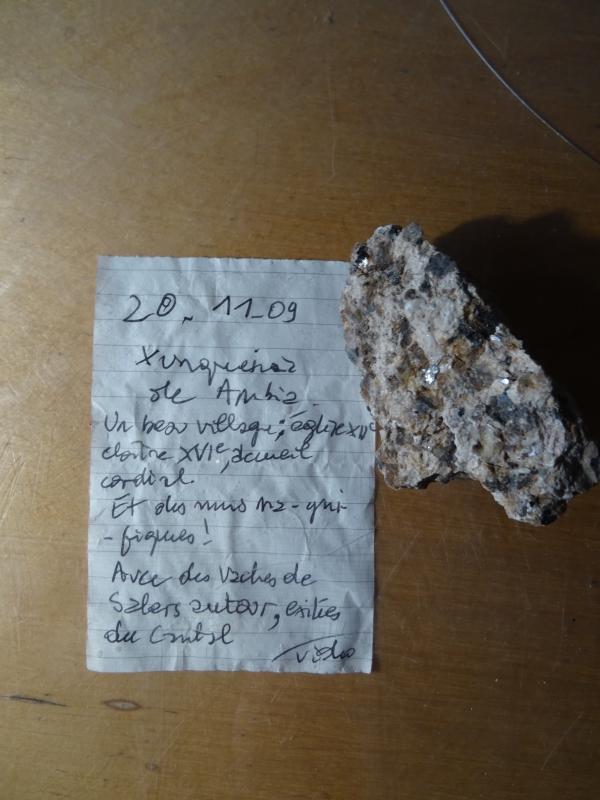 20. 11-09
Xunqueira
de Ambia
Un beau village; église XVe
cloître XVIe, accueil
cordial
Et des murs ma-gni
-fiques!
Avec des Vaches de
Salers autour, exilées
du Cantal
Video